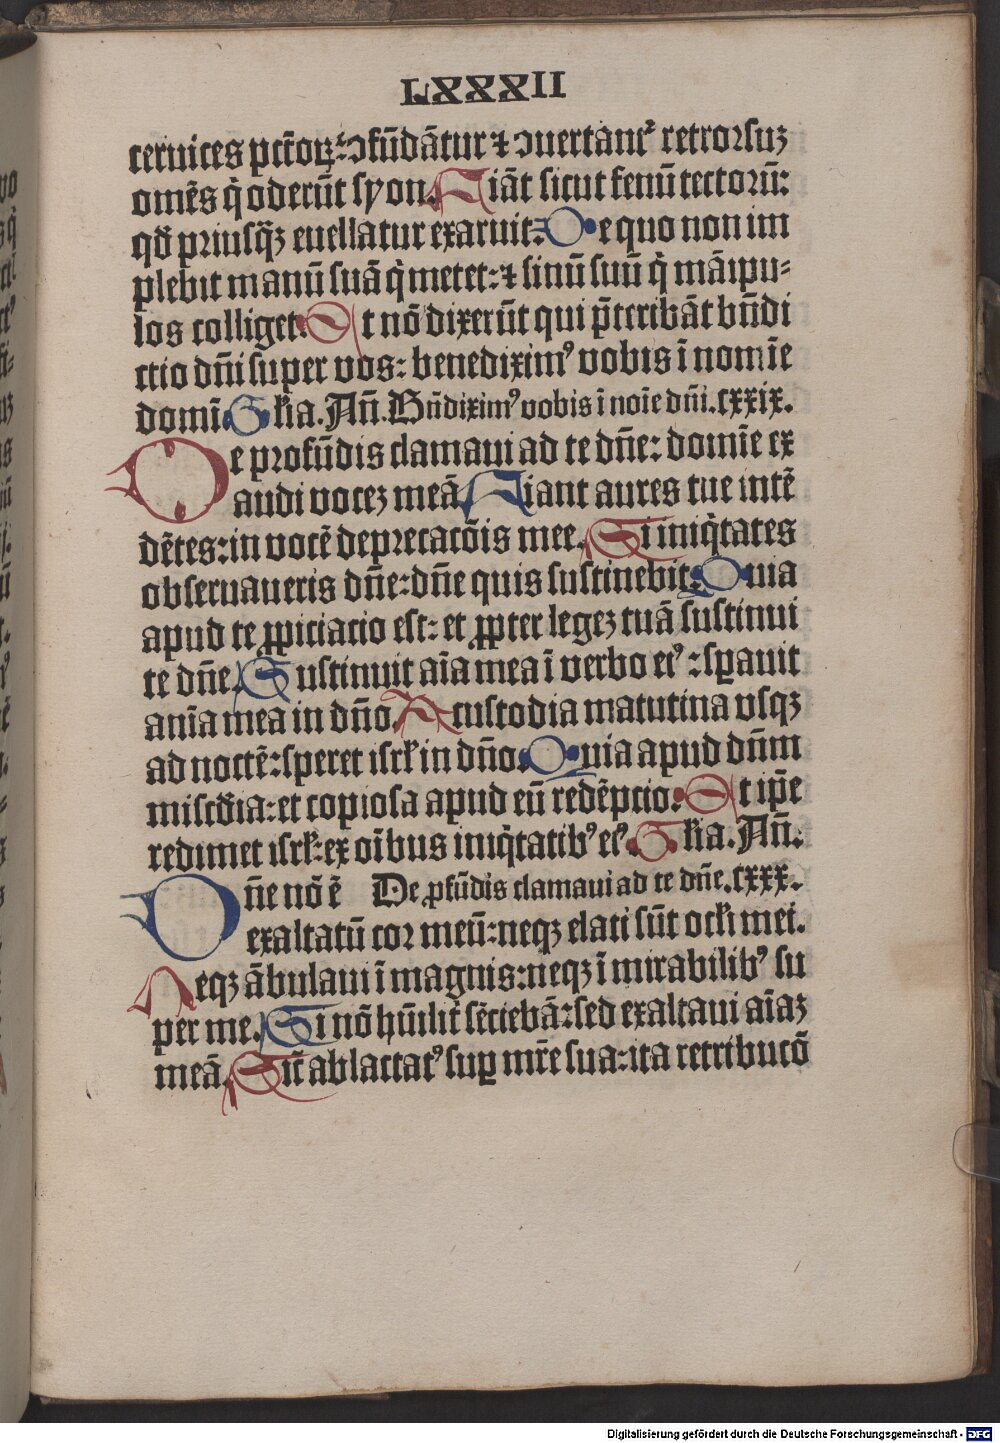 LXXXII
ceruices pctōꝝ: ꝯfūdātur ⁊ ꝯuertantᷣ retrorsuꝫ
omēs q̇ oderūt syon. Fiāt sicut fenū tectorū:
qđ priusq̄ꝫ euellatur exaruit: De quo non im
plebit manū suā q̇ metet: ⁊ sinū suū q̇ māıpu⸗
los colliget. Et nō dixerūt qui p̄teribāt bn̄di
ctio dn̄i super vos: benediximꝰ vobis ī nomīe
domī. Gl̄ia. An̄. Bn̄diximꝰ vobis ī noīe dn̄i. cxxix.
De profūdis clamaui ad te dn̄e: domīe ex
audi voceꝫ meā. Fiant aures tue intē
dētes: in vocē deprecatōis mee. Si iniq̇tates
obseruaueris dn̄e: dn̄e quis sustinebit: Quia
apud te ꝓpiciacio est: et ꝓpter legeꝫ tuā sustinui
te dn̄e. Sustinuit aīa mea ī verbo eiꝰ: sꝑauit
anīa mea in dn̄o. A custodia matutina vsqꝫ
ad noctē: speret isrł in dn̄o. Quia apud dn̄m
misc̄dia: et copiosa apud eū redēpcio. Et ip̄e
redimet isrł: ex oībus iniq̇tatibꝰ eiꝰ. Gl̄ia. An̄:
Dn̄e nō ē De ꝓfūdis clamaui ad te dn̄e. cxxx.
exaltatū cor meū: neqꝫ elati sūt ocłi mei.
Neqꝫ ābulaui ī magnis: neqꝫ ī mirabilibꝰ su
per me. Si nō hūilit̄ sēciebā: sed exaltaui aīaꝫ
meā. Sic̄ ablactatꝰ suꝑ mr̄e sua: ita retribucō
Digitalisierung gefördert durch die Deutsche Forschungsgemeinschaft - DFG